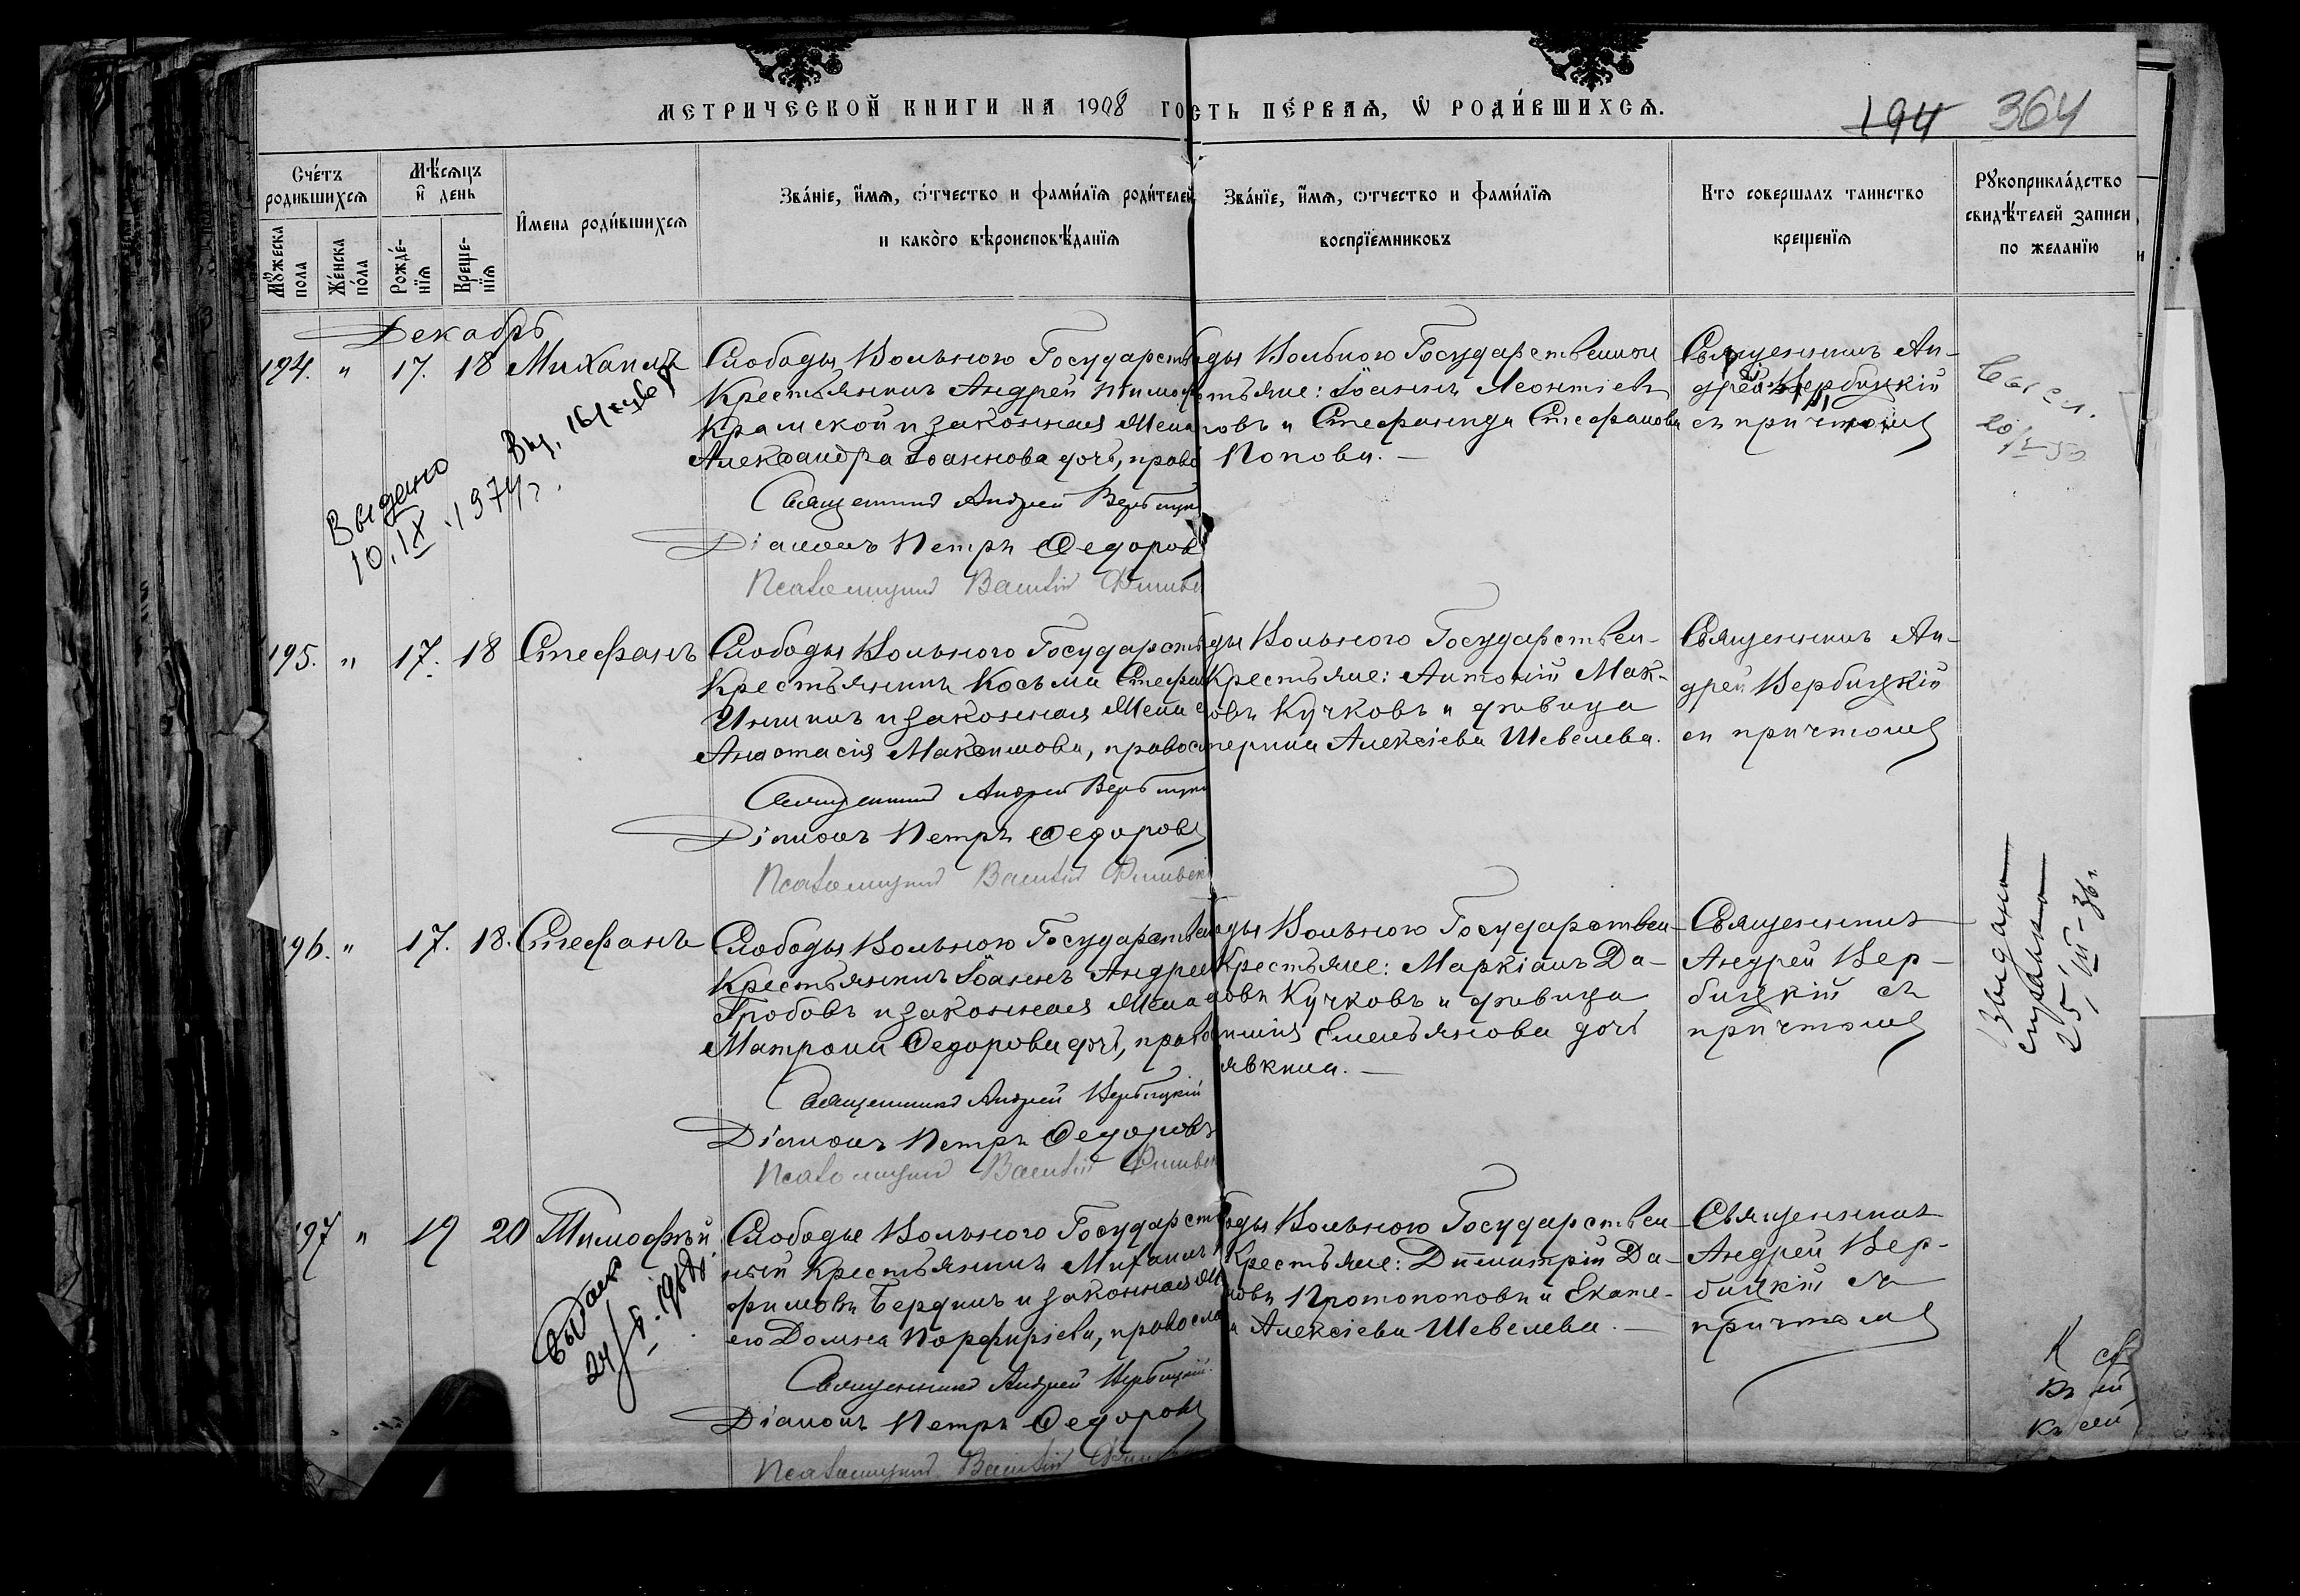 МЕТРИЧЕСКОЙ КНИГИ НА 1908 ГО СТЬ ПЕ́РВАЯ, Ѡ РОДИ́ВШИХСЯ.
194 364
Сче́тъ родившихся
Мѣсяцъ и день
Имена роди́вшихся
Зва́нїе, и́мя, о́тчество и фами́лїя роди́телей,
и како́го вѣроисповѣ́данїя
Зва́нїе, и́мя, о́тчество и фами́лїя
воспрїемниковъ
Кто совершалъ таинство
крещенїя
Рꙋкоприкла́дство
свидѣ́телей записи
по желанїю
Мꙋ́жеска пола
Же́нска по́ла
Рожде́-
нїя
Креще-
нїя
Декабрь
194. " 17. 18 Михаилъ
Слободы Вольного Государств
Крестьянинъ Андрей Тимоф
Крамской и законная жена
Александра Іоаннова дочь, прав
Священникъ Андрей Вербицк
Діаконъ Петръ Ѳедоров
Псаломщикъ
ды Вольного Государственном
тьяне: Іоаннъ Леонтіев
новъ и Стефанида Стефанова
Попова. —
Священникъ Ан-
дрей Вербицкій
съ причтомъ
Выдано
10.IX.1974г.
195. " 17. 18 Стефанъ
Слободы Вольного Государств
Крестьянинъ Косьма Стефа
Ининъ и законная жена е
Анастасія Максимова, правосл
Священникъ Андрей Вербицк
Діаконъ Петръ Ѳедоровъ
Псаломщикъ
ды Вольного Государствен-
Крестьяне: Антоній Мак-
овъ Кучковъ и дѣвица
терина Алексіева Шевелева.
Священникъ Ан-
дрей Вербицкій
съ причтомъ
196. " 17. 18. Стефанъ
Слободы Вольного Государствен
Крестьянинъ Іоаннъ Андрее
Гробовъ и законная жена
Матрона Ѳедорова дочь, право
Священникъ Андрей Вербицкій
Діаконъ Петръ Ѳедоровъ
Псаломщикъ
оды Вольного Государствен-
Крестьяне: Маркіанъ Да-
довъ Кучковъ и дѣвица
Емельянова дочь
явкина. —
Священникъ
Андрей Вер-
бицкій съ
причтомъ
Выдана
справка
25/III-36г.
197 " 19 20 Тимоѳей
Слободы Вольного Государст
ный Крестьянинъ Михаилъ
фимовъ Бердинъ и законная ж
его Домна Порфиріева, правосла
Священникъ Андрей Вербицкій.
Діаконъ Петръ Ѳедоровъ
Псаломщикъ
оды Вольного Государствен-
Крестьяне: Димитрій Да-
новъ Протопоповъ и Екате-
а Алексіева Шевелева. —
Священникъ
Андрей Вер-
бицкій съ
причтомъ
Выдано